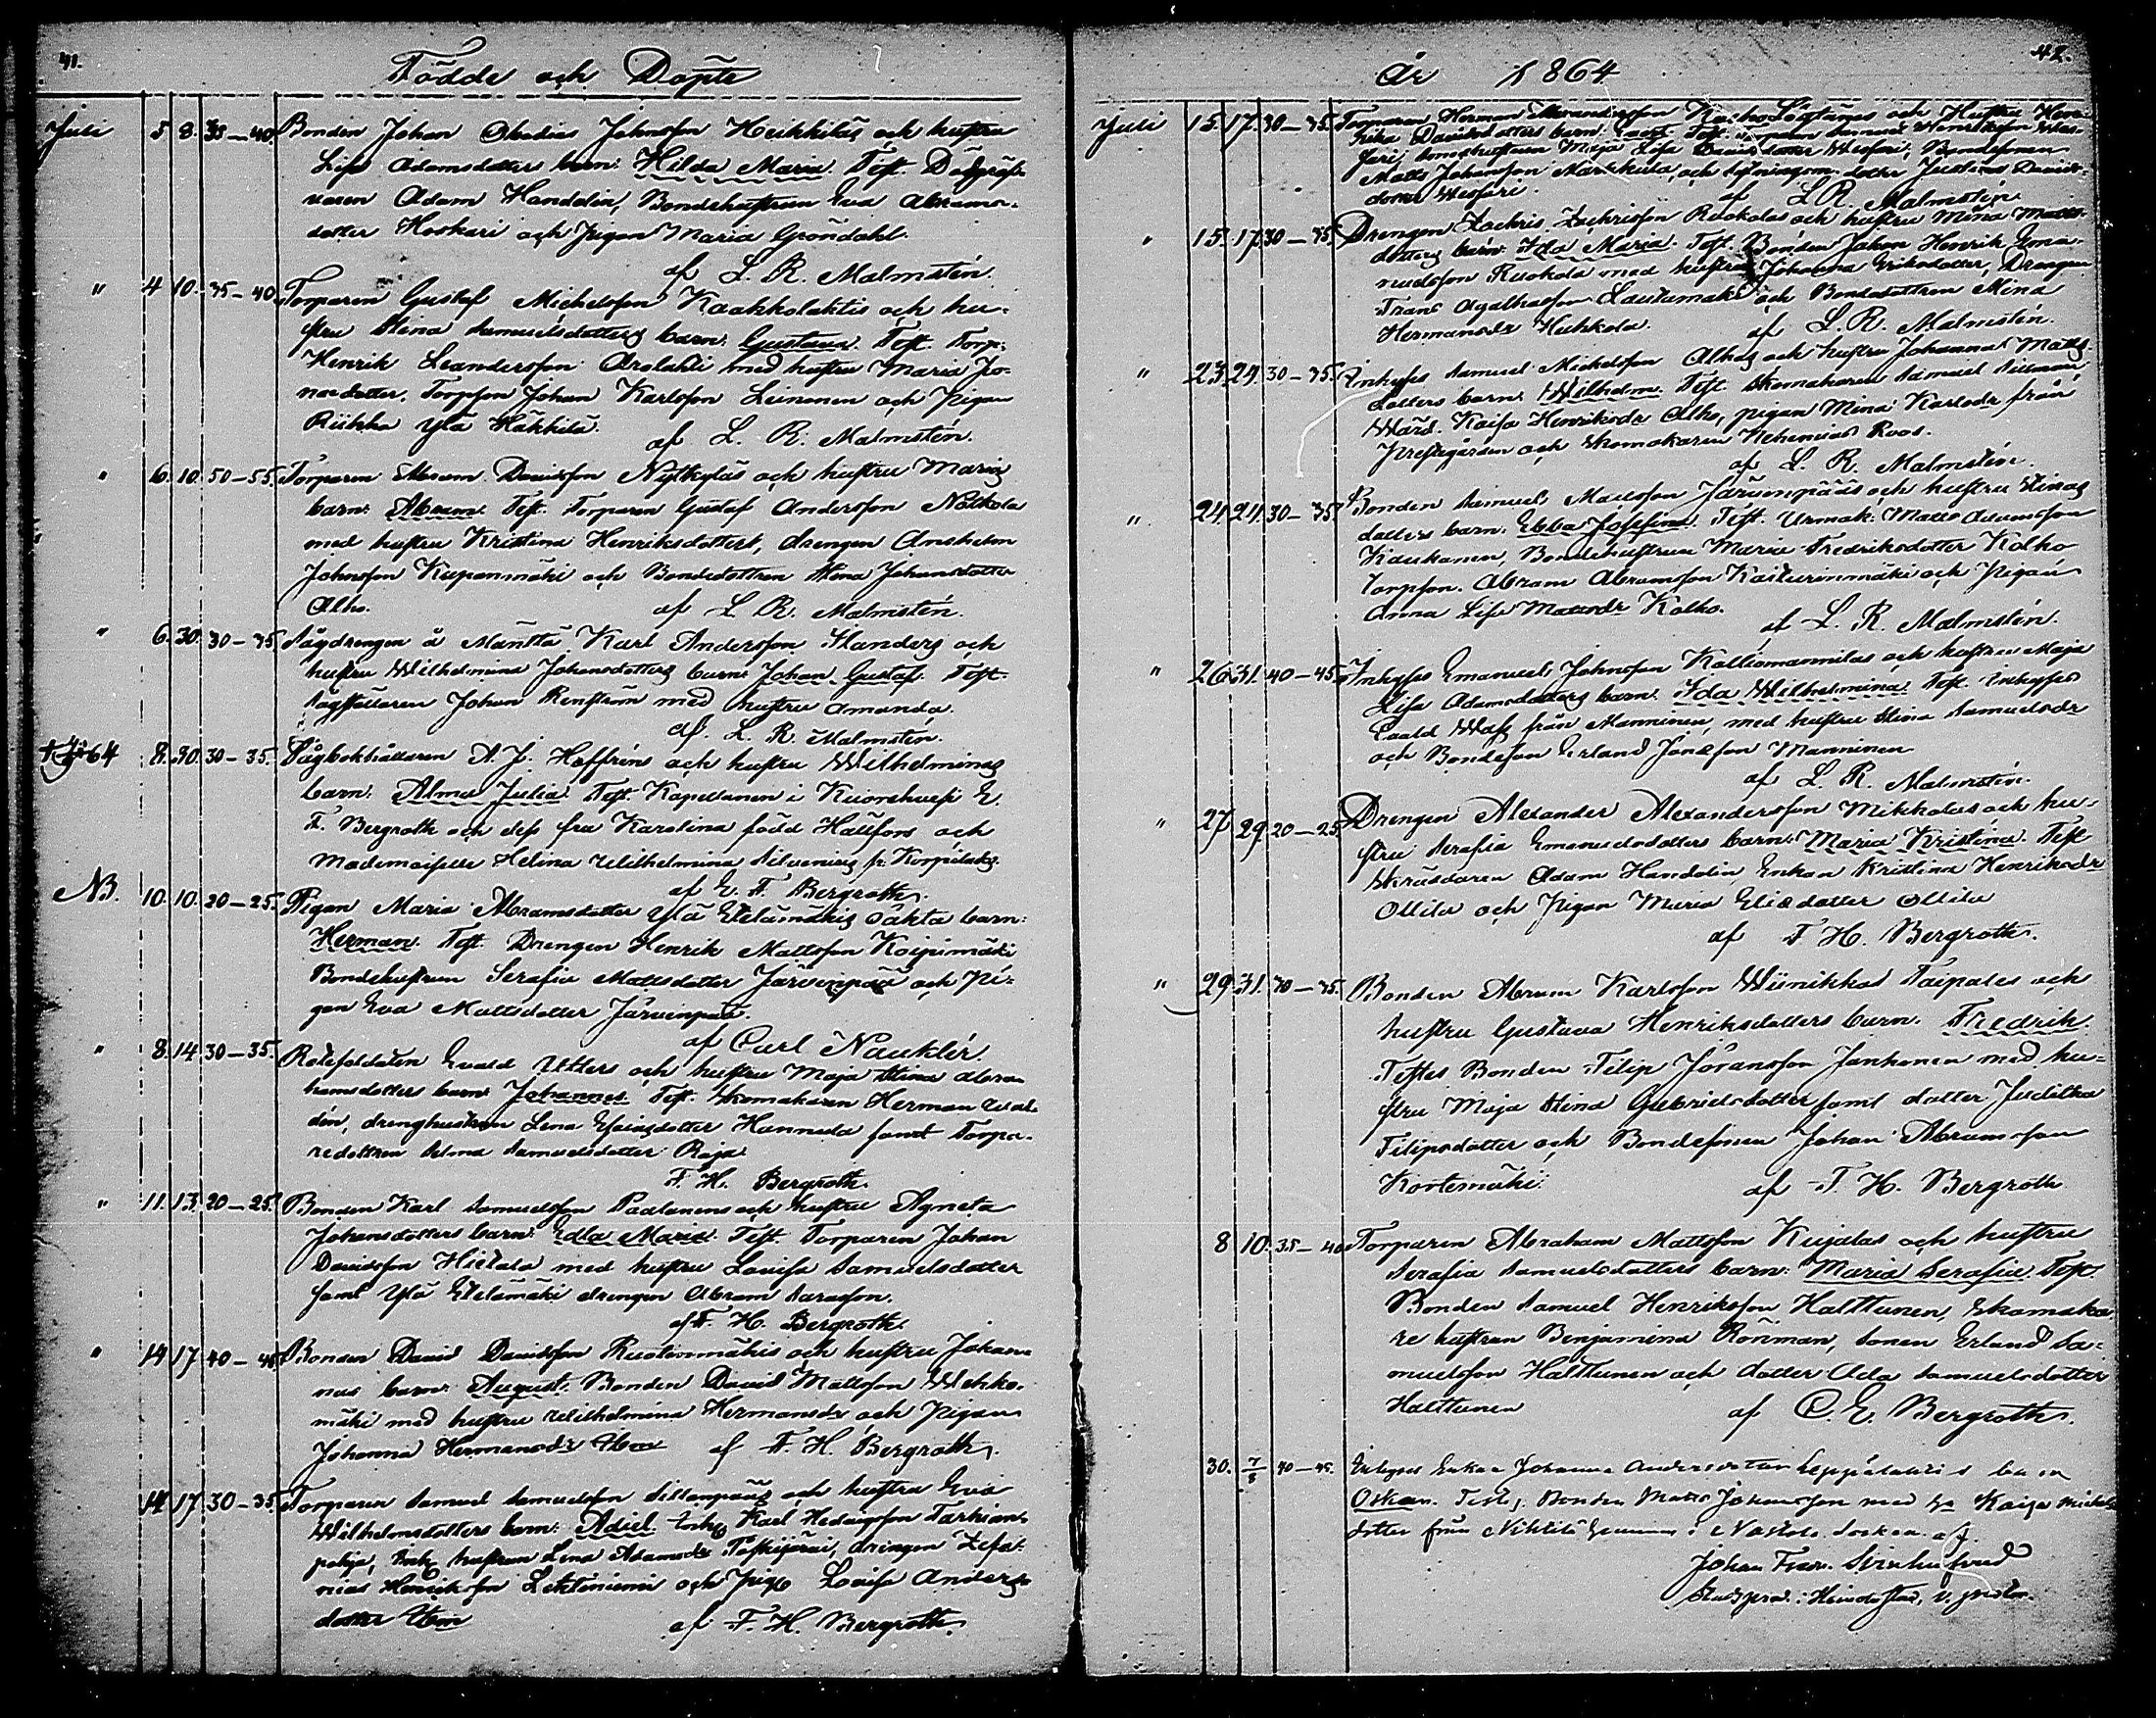 41.
Födde och Döpte
Juli 5. 8. 35–40. Bonden Johan Obadias Johnsson Heikkiläs och hustru
Lisa Adamsdotters barn: Hilda Maria. Test. Dödgräf-
varen Adam Handolin, Bondehustrun Eva Abrams-
dotter Koskari och Pigan Maria Gröndahl.
af L. R. Malmstén.
" 4 10. 35–40. Torparen Gustaf Michelsson Kaakkolahtis och hu-
stru Stina Samuelsdotters barn: Gustava. Test. Torp.
Henrik Leandersson Arolahti med hustru Maria Jo-
nasdotter, Torpson Johan Karlsson Leinonen och Pigan
Riikka Ylä Häkkilä.
af L. R. Malmstén.
" 6. 10. 50–55. Torparen Abram Davidsson Nyltkyläs och hustru Marias
barn: Abram. Test. Torparen Gustaf Andersson Nälkola
med hustru Kristina Henriksdotter, drengen Anshelm
Johnsson Kupanmäki och Bondedottren Stina Johansdotter
Alho.
af L. R. Malmstén.
" 6. 30. 30–35. Sågdrengen å Mänttä Karl Andersson Standers och
hustru Wilhelmina Johansdotters barn: Johan Gustaf. Test.
Sågställaren Johan Renström med hustru Amanda.
af L. R. Malmstén.
64 8. 30. 30–35. Sågbokhållaren A. J. Hoffréns och hustru Wilhelminas
barn: Alma Julia. Test. Kapellanen i Kuorehvesi E.
F. Bergroth och dess fru Karolina född Hällfors och
Mademoiselle Helina Wilhelmina Silvenius fr. Korpilaks.
af E. F. Bergroth.
NB. 10. 10. 20–25. Pigan Maria Abramsdotter Ylä Etelämäkis oäkta barn:
Herman. Test. Drengen Henrik Mattsson Koipimäki
Bondehustrun Serafia Mattsdotter Järvenpää och Pi-
gan Eva Mattsdotter Järvenpää.
af Carl Nauklér.
" 8. 14. 30–35. Rotesoldaten Evald Utters och hustru Maja Stina Abra
hamsdotters barn: Johannes. Test. Skomakaren Herman Wal-
dén, drenghustrun Lena Esaiasdotter Hannula samt Torpa-
redottren Selma Samuelsdotter Raja.
F. H. Bergroth.
" 11. 13. 20–25. Bonden Karl Samuelsson Paalanens och hustru Agneta
Johansdotters barn: Edla Maria. Test. Torparen Johan
Davidsson Hietala med hustru Lovisa Samuelsdotter
samt Ylä Etelämäki drengen Abram Aaronsson.
af F. H. Bergroth.
" 14 17 40–45. Bonden David Davidsson Ruolinmäkis och hustru Johan-
nas barn: August. Bonden David Mattsson Wehko-
mäki med hustru Wilhelmina Hermansdr och Pigan
Johanna Hermansdr
af F. H. Bergroth.
14. 17 30–35. Torparen Samuel Samuelsson Sillanpääs och hustru Eva
Wilhelmsdotters barn: Adiel. Karl Hedvigsson Tarhian-
pohja, hustrun Lena Adamsdr Paskijärvi, drengen Zefa-
nias Henriksson Lehtiniemi och Lovisa Anders-
dotter
af F. H. Bergroth.
42.
År 1864
Juli 15. 17. 30–35. Torparen Herman och Hustru
Erika Davidsdotters barn: Test.
Maja Lisa Bondesonen
Matts Johansson Markkula, och dotter Justina Davids-
dotter
af L. R. Malmstén.
" 15. 17. 30–35. Drengen Zachris Zachrisson Ruokolas och hustru Mina Matts-
dotters barn: Ida Maria. Test. Bonden Johan Henrik Ema-
nuelsson Ruokola med hustru Johanna Eriksdotter, Drengen
Frans Agathusson Lautamäki och Bondedottren Mina
Hermansdr Huhkola.
af L. R. Malmstén.
" 23. 24. 30–35. Inhyses Samuel Michelsson Alhos och hustru Johanna Matts-
dotters barn: Wilhelm. Test. Skomakaren Samuel
Wärd. Kaisa Henriksdr Alho, pigan Mina Karlsdr från
Prestgården och Skomakaren Nehemias Roos.
af L. R. Malmstén.
" 24. 24. 30–35. Bonden Samuel Mattsson Järvenpääs och hustru Stinas
dotters barn: Ebba Josefina. Test. Urmak. Matts Adamsson
Kaukanen, Bondehustrun Maria Fredriksdotter Kalho
torpson. Abram Abramsson Kaiturinmäki och Pigan
Anna Lisa Mattsdr Kalho.
af L. R. Malmstén.
" 26. 31. 40–45. Inhyses Emanuel Johnsson Kalliomannilas och hustru Maja
Lisa Adamsdotters barn: Ida Wilhelmina. Test. Inhyses
Evald Wass från Manninen, med hustru Stina Samuelsdr
och Bondeson Erland Jonasson Manninen
af L. R. Malmstén.
" 27 29. 20–25. Drengen Alexander Alexandersson Mikkolas och hu-
stru Serafia Emanuelsdotters barn: Maria Kristina. Test
Skräddaren Adam Handolin, Enkan Kristina Henriksdr
Ollila och Pigan Maria Eliedotter Ollila
af F. H. Bergroth.
" 29. 31. 30–35. Bonden Abram Karlsson Wiinikkas Taipales och
hustru Gustava Henriksdotters barn. Fredrik.
Testes Bonden Filip Göransson Janhonen med hu-
stru Maja Stina Gabrielsdotter samt dotter Juditha
Filipsdotter och Bondesonen Johan Abramsson
Kortemäki.
af F. H. Bergroth
8 10. 35–40. Torparen Abraham Mattsson Kujalas och hustru
Serafia Samuelsdotters barn: Maria Serafia. Test.
Bonden Samuel Henriksson Halttunen, Skomaka-
re hustrun Benjamina Rönman, sonen Erland Sa-
muelsson Halttunen och dotter Ada Samuelsdotter
Halttunen
af C. E. Bergroth.
30. 7/8 40–45. Inhyses Enkan Johanna Andersdotter Leppälahtis barn
Oskar. Test. Bonden Matts Johansson med h. Kaisa Michels
dotter från i Nastola socken. af
Johan Fredr. Svinhufvud